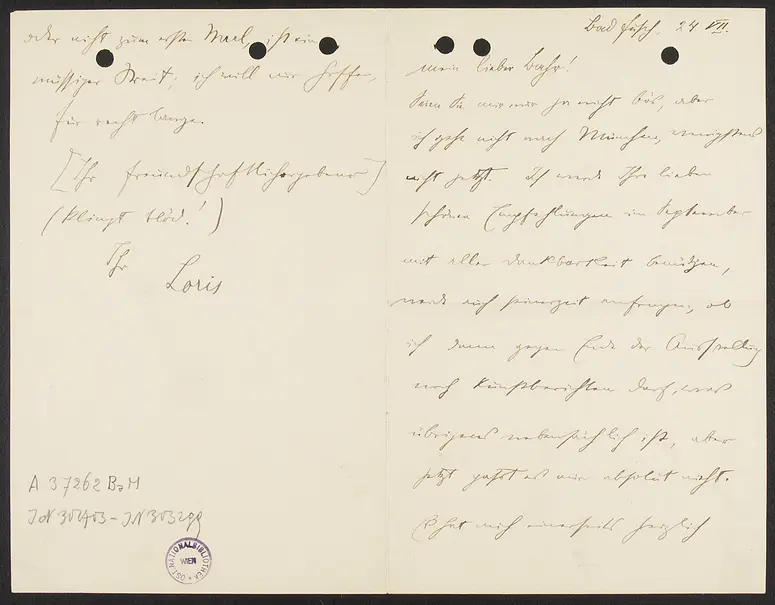 Bad Fusch, 24 VII.
mein lieber Bahr!
Seien Sie mir nur ja nicht bös, aber
ich gehe nicht nach München, wenigstens
nicht jetzt. Ich werde Ihre lieben
schönen Empfehlungen im September
mit aller Dankbarkeit benützen,
werde auch seinerzeit anfragen, ob
ich dann gegen Ende der Ausstellung
noch Kunstberichten darf, was
übrigens nebensächlich ist, aber
jetzt passt es mir absolut nicht.
Es hat mich einerseits herzlich
oder nicht zum ersten Mal, ist ein
müssiger Streit; ich will nur hoffen,
für recht lange.
[Ihr freundschaftlichergebener]
(klingt blöd!)
Ihr
Loris
A 37262 BaM
ÖST. NATIONALBIBLIOTHEK
WIEN